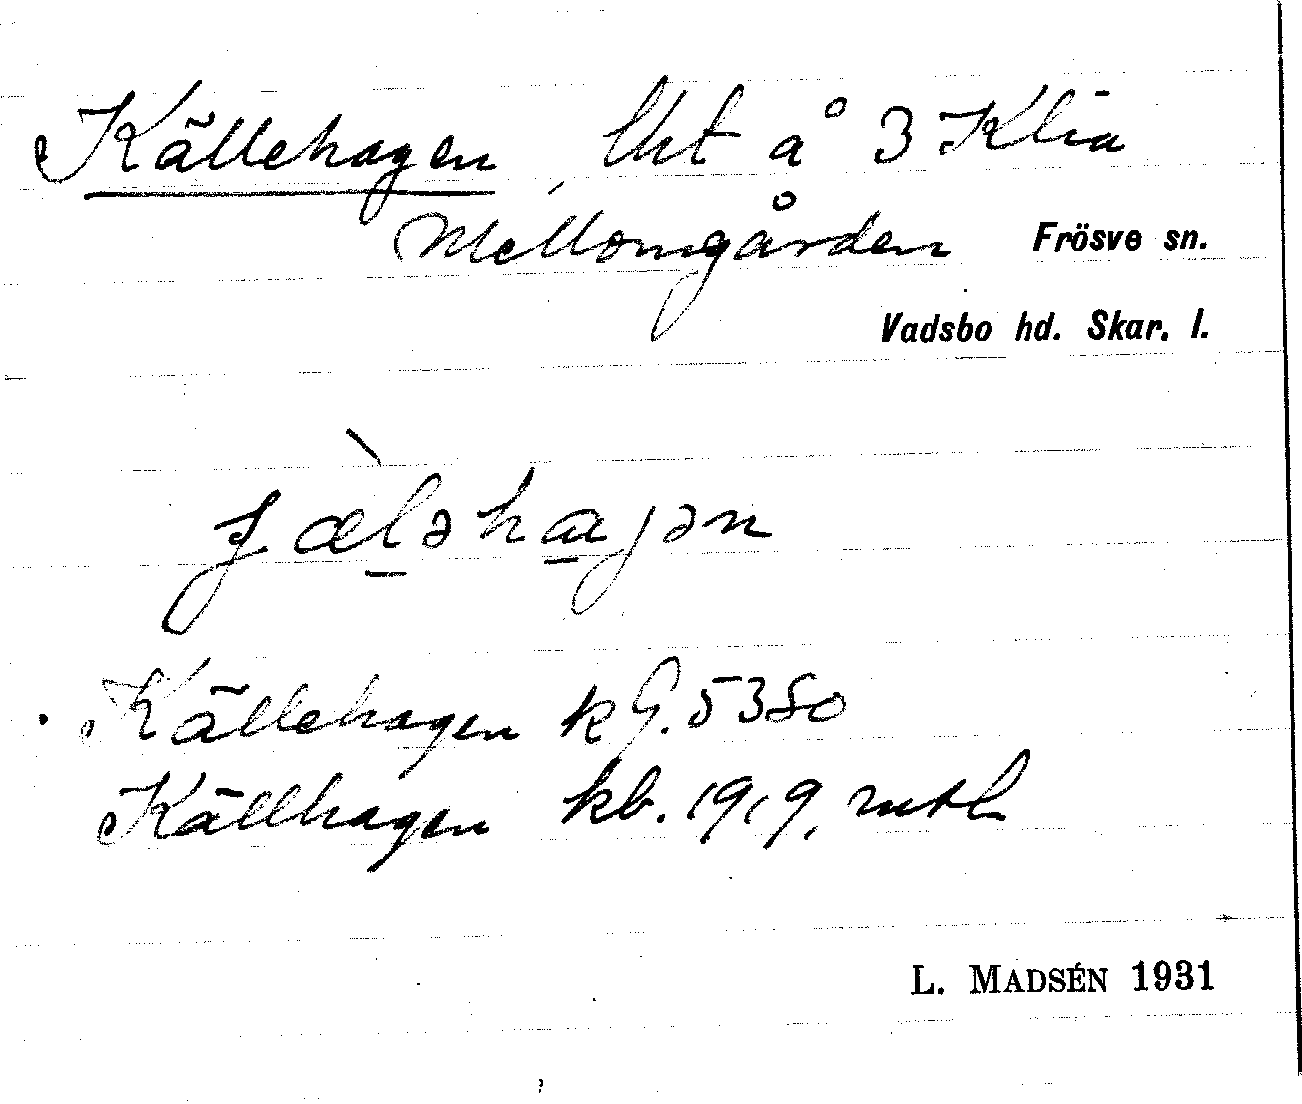 Källehagen, lht å 3 Klia
Mellomgården Frösve sn.
Vadsbo hd. Skar. l.
Källehagen kG. 5380
Källhagen kb. 1919, mtl
L. MADSÉN 1931